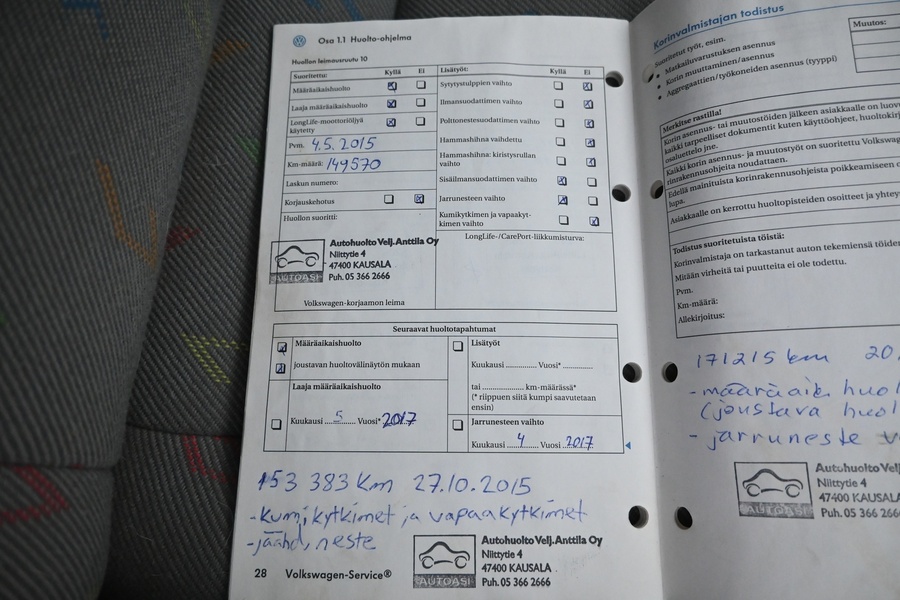 Osa 1.1 Huolto-ohjelma
Huollon leimausruutu 10
Suoritettu: Kyllä Ei
Määräaikaishuolto
Laaja määräaikaishuolto
LongLife-moottoriöljyä
käytetty
Pvm. 4.5.2015
Km-määrä: 149570
Laskun numero:
Korjauskehotus
Huollon suoritti:
Autohuolto Velj.Anttila Oy
Niittytie 4
47400 KAUSALA
Puh. 05 366 2666
AUTOASI
Volkswagen-korjaamon leima
Lisätyöt: Kyllä Ei
Sytytystulppien vaihto
Ilmansuodattimen vaihto
Polttonestesuodattimen vaihto
Hammashihna vaihdettu
Hammashihna: kiristysrullan
vaihto
Sisäilmansuodattimen vaihto
Jarrunesteen vaihto
Kumikytkimen ja vapaakyt-
kimen vaihto
LongLife-/CarePort-liikkumisturva:
Seuraavat huoltotapahtumat
Määräaikaishuolto
Joustavan huoltovälinäytön mukaan
Laaja määräaikaishuolto
Kuukausi ....5.... Vuosi* 2017
Lisätyöt
Kuukausi .............. Vuosi* ..............
tai .............. km-määrässä*
(* riippuen siitä kumpi saavutetaan
ensin)
Jarrunesteen vaihto
Kuukausi ....4.... Vuosi ..2017
153 383 Km 27.10.2015
-kumikytkimet ja vapaakytkimet
-jäähd, neste
AUTOASI
Autohuolto Velj.Anttila Oy
Niittytie 4
47400 KAUSALA
Puh. 05 366 2666
28 Volkswagen-Service®
Korinvalmistajan todistus
Suoritetut työt, esim.
• Matkailuvarustuksen asennus
• Korin muuttaminen/asennus
• Aggregaattien/työkoneiden asennus (tyyppi)
Muutos:
Merkitse rastilla!
Korin asennus- tai muutostöiden jälkeen asiakkaalle on
kaikki tarpeelliset dokumentit kuten käyttöohjeet,
osaluettelo jne.
Kaikki korin asennus- ja muutostyöt on suoritettu
rinrakennusohjeita noudattaen.
Edellä mainituista korinrakennusohjeista poikkeamiseen
lupa.
Asiakkaalle on kerrottu huoltopisteiden osoitteet ja
Todistus suoritetuista töistä:
Korinvalmistaja on tarkastanut auton tekemiensä
Mitään virheitä tai puutteita ei ole todettu.
Pvm.
Km-määrä:
Allekirjoitus:
171215 km 20.
-määräaik. huol
(joustava huol
- jarruneste v
AUTOASI
Autohuolto Velj
Niittytie 4
47400 KAUSALA
Puh. 05 366 266